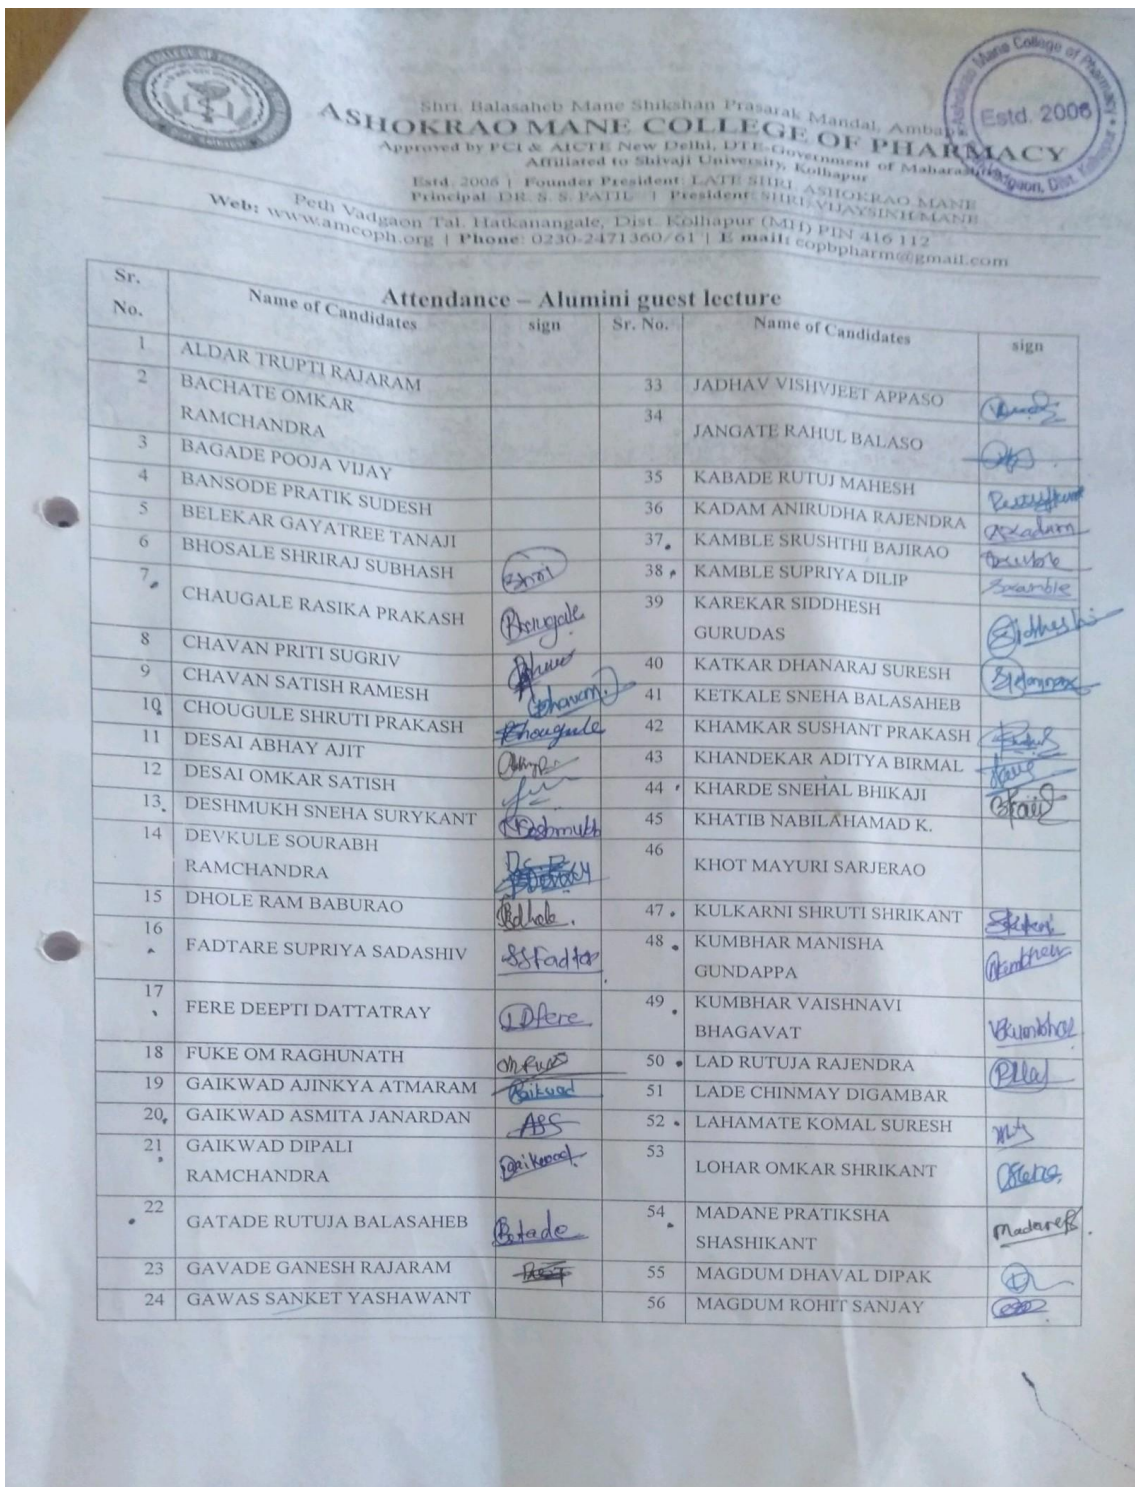 Shri. Balasaheb Mane Shikshan Prasarak Mandal, Ambap
ASHOKRAO MANE COLLEGE OF PHARMACY
Approved by PCI & AICTE New Delhi, DTE-Government of Maharashtra
Affiliated to Shivaji University, Kolhapur
Estd. 2006 | Founder President: LATE SHRI. ASHOKRAO MANE
Principal DR. S. S. PATIL | President: SHRI. VIJAYSINH MANE
Peth Vadgaon Tal. Hatkanangale, Dist. Kolhapur (MH) PIN 416 112
Web: www.amcoph.org | Phone: 0230-2471360/61 | E mail: copbpharm@gmail.com
Ashokrao Mane College of Pharmacy
Estd. 2006
Attendance – Alumini guest lecture
Sr. No. Name of Candidates sign Sr. No. Name of Candidates sign
1 ALDAR TRUPTI RAJARAM 33 JADHAV VISHVJEET APPASO
2 BACHATE OMKAR RAMCHANDRA 34 JANGATE RAHUL BALASO
3 BAGADE POOJA VIJAY 35 KABADE RUTUJ MAHESH
4 BANSODE PRATIK SUDESH 36 KADAM ANIRUDHA RAJENDRA
5 BELEKAR GAYATREE TANAJI 37 KAMBLE SRUSHTHI BAJIRAO
6 BHOSALE SHRIRAJ SUBHASH 38 KAMBLE SUPRIYA DILIP
7 CHAUGALE RASIKA PRAKASH 39 KAREKAR SIDDHESH GURUDAS
8 CHAVAN PRITI SUGRIV 40 KATKAR DHANARAJ SURESH
9 CHAVAN SATISH RAMESH 41 KETKALE SNEHA BALASAHEB
10 CHOUGULE SHRUTI PRAKASH Chougule 42 KHAMKAR SUSHANT PRAKASH
11 DESAI ABHAY AJIT 43 KHANDEKAR ADITYA BIRMAL
12 DESAI OMKAR SATISH 44 KHARDE SNEHAL BHIKAJI
13 DESHMUKH SNEHA SURYKANT Deshmukh 45 KHATIB NABILAHAMAD K.
14 DEVKULE SOURABH RAMCHANDRA 46 KHOT MAYURI SARJERAO
15 DHOLE RAM BABURAO 47 KULKARNI SHRUTI SHRIKANT
16 FADTARE SUPRIYA SADASHIV 48 KUMBHAR MANISHA GUNDAPPA
17 FERE DEEPTI DATTATRAY 49 KUMBHAR VAISHNAVI BHAGAVAT
18 FUKE OM RAGHUNATH 50 LAD RUTUJA RAJENDRA
19 GAIKWAD AJINKYA ATMARAM Gaikwad 51 LADE CHINMAY DIGAMBAR
20 GAIKWAD ASMITA JANARDAN 52 LAHAMATE KOMAL SURESH
21 GAIKWAD DIPALI RAMCHANDRA 53 LOHAR OMKAR SHRIKANT
22 GATADE RUTUJA BALASAHEB 54 MADANE PRATIKSHA SHASHIKANT
23 GAVADE GANESH RAJARAM 55 MAGDUM DHAVAL DIPAK
24 GAWAS SANKET YASHAWANT 56 MAGDUM ROHIT SANJAY